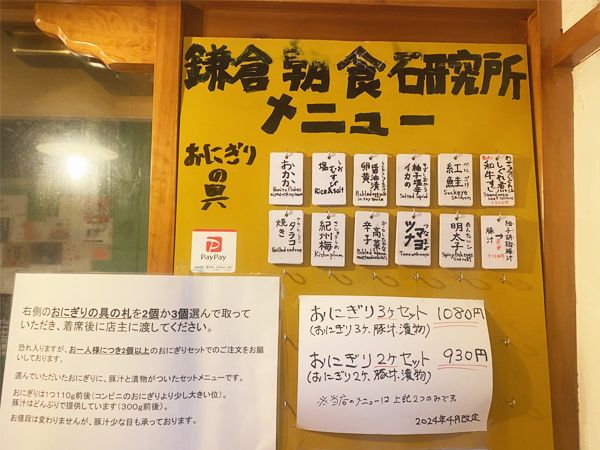 鎌倉朝食研究所
メニュー
おにぎり
の具
おかか
塩むすび
Rice & salt
卵黄醤油漬
イカの柚子塩辛
紅鮭
べにざけ
和牛しぐれ煮
焼きタラコ
紀州梅
Kishu plum
辛子高菜
ツナマヨ
明太子
めんたいこ
柚子胡椒豚汁
豚汁
PayPay
右側のおにぎりの具の札を2個か3個選んで取って
いただき、着席後に店主に渡してください。
恐れ入りますが、お一人様につき2個以上のおにぎりセットでのご注文をお願
いしております。
選んでいただいたおにぎりに、豚汁と漬物がついたセットメニューです。
おにぎりは1つ110g前後（コンビニのおにぎりより少し大きい位）。
豚汁はどんぶりで提供しています（300g前後）。
お値段は変わりませんが、豚汁少な目も承っております。
おにぎり3ヶセット 1080円
(おにぎり3ケ、豚汁、漬物)
おにぎり2ケセット 930円
(おにぎり2ケ、豚汁、漬物)
※当店のメニューは上記2つのみです。
2024年4月改定